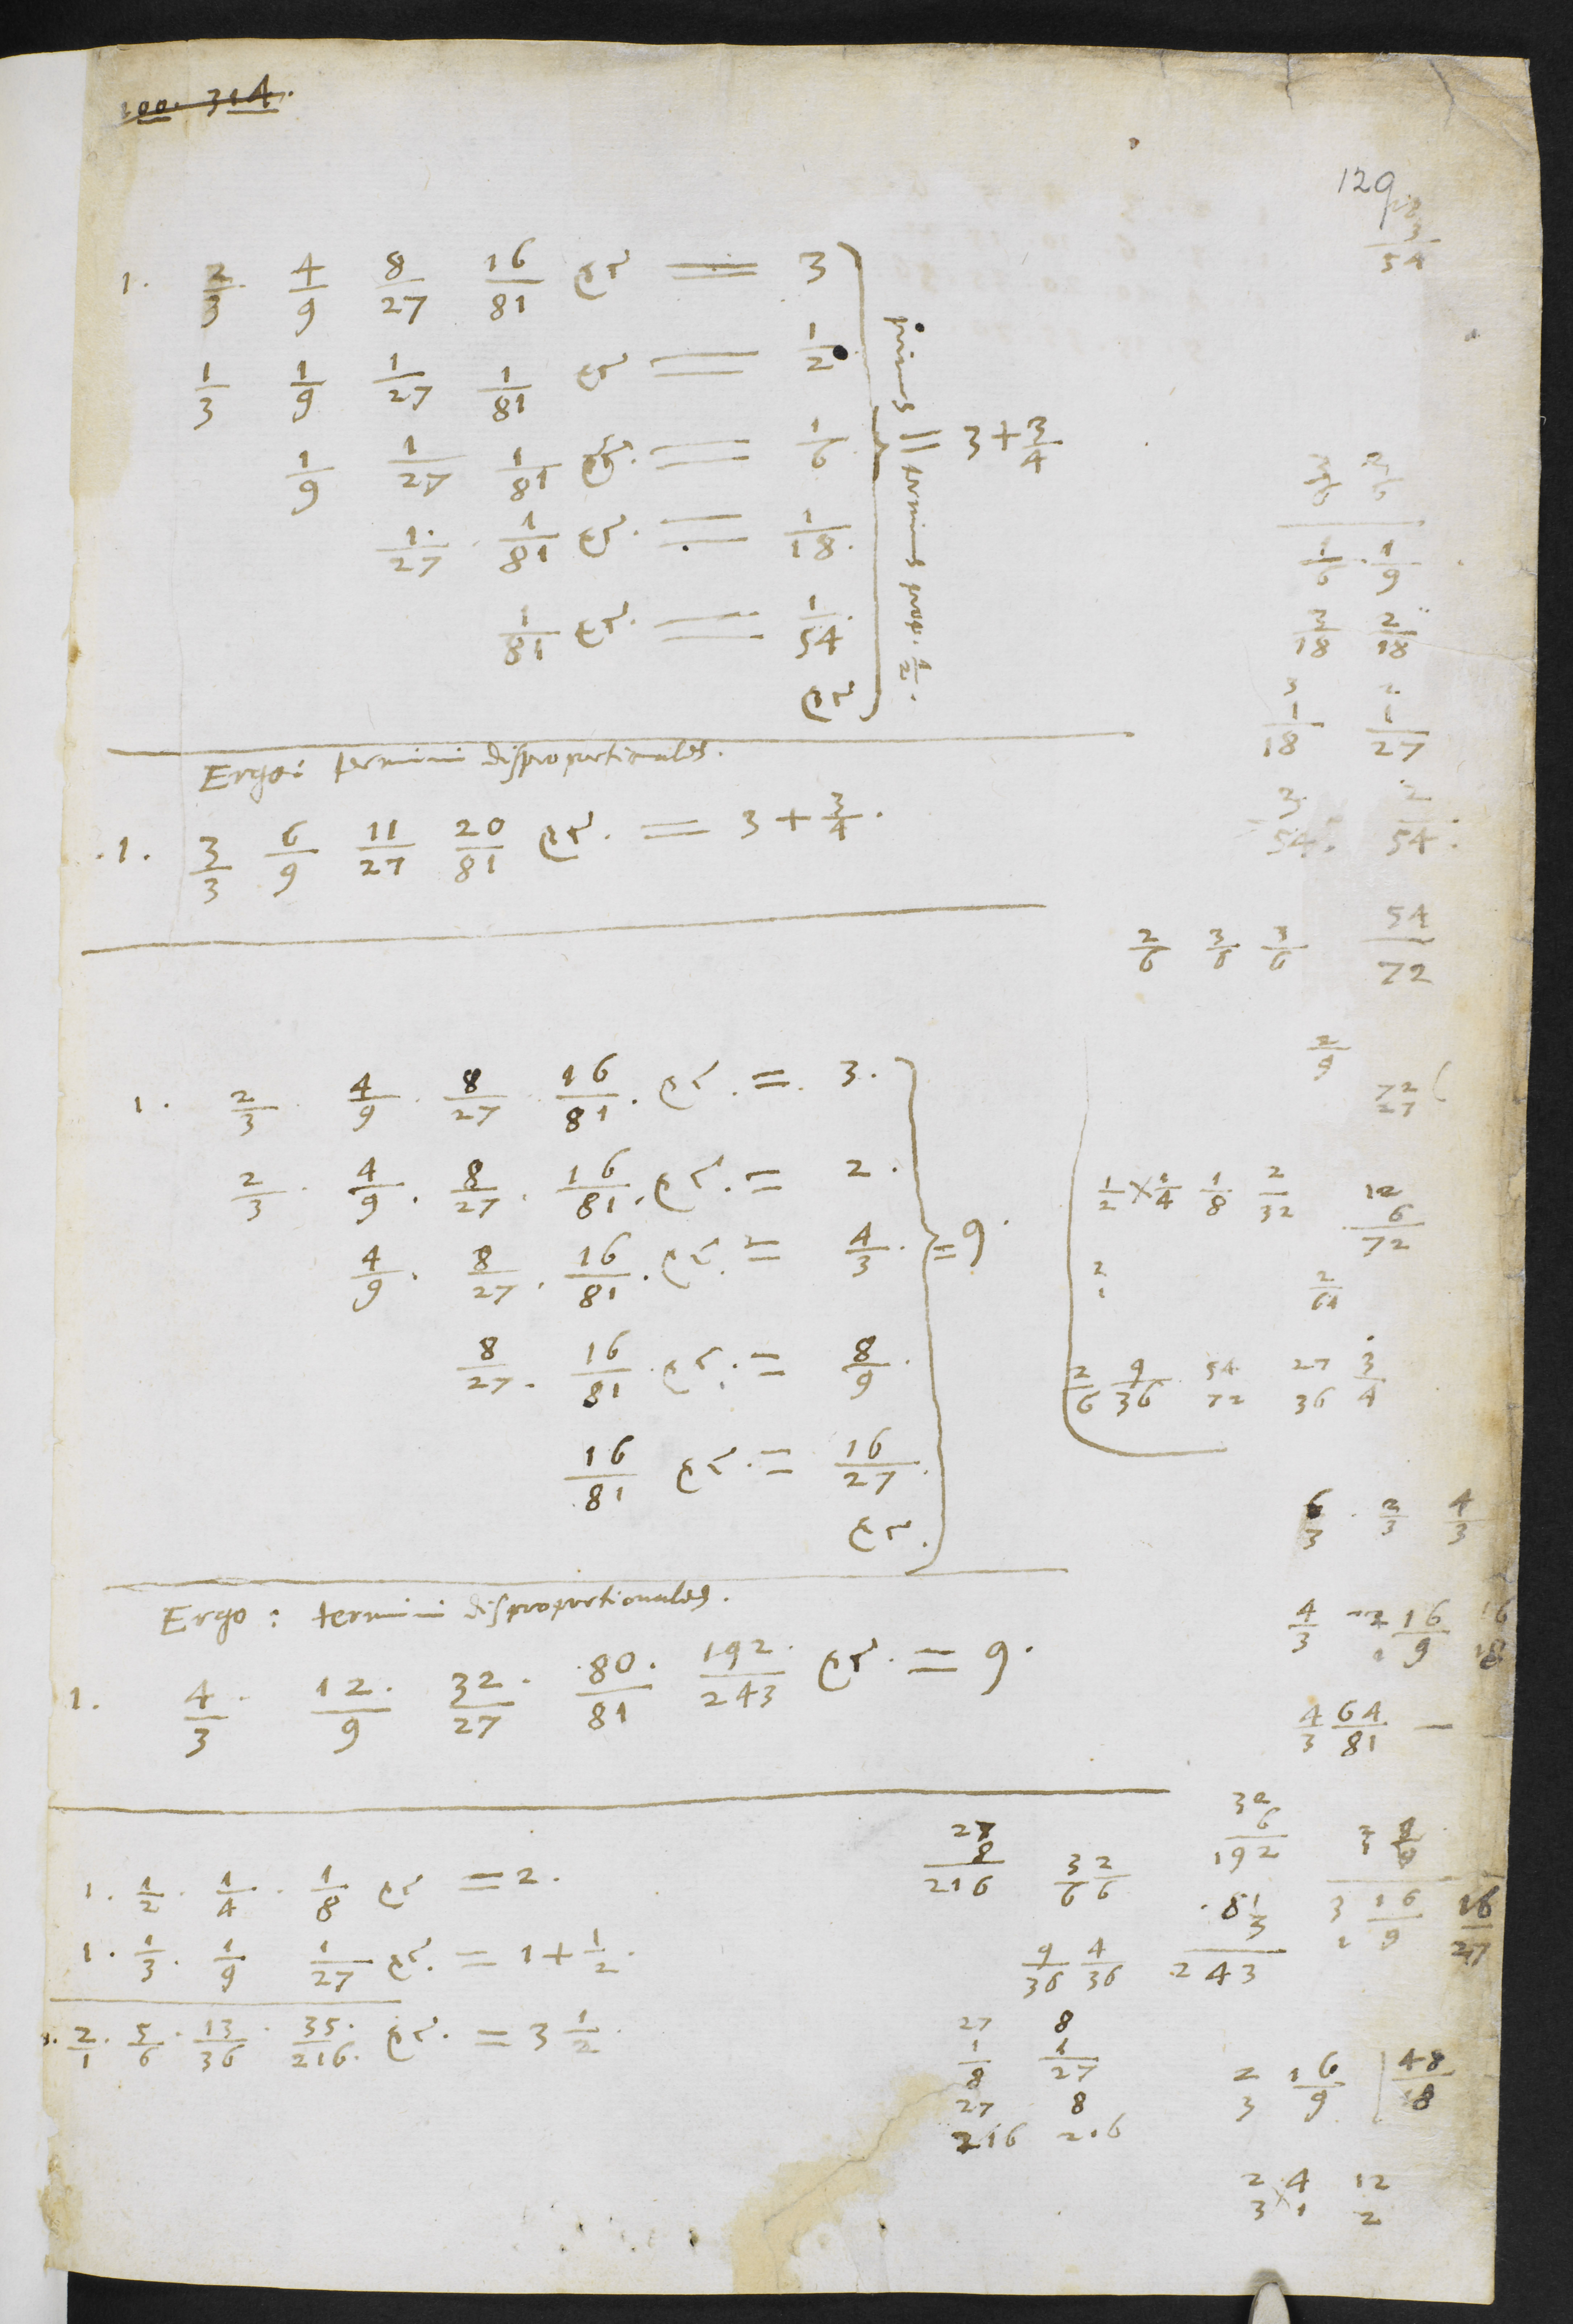 100. 314.
129
3
54
1. 2/3 4/9 8/27 16/81 &c. = 3
1/3 1/9 1/27 1/81 &c. = 1/2
1/9 1/27 1/81 &c. = 1/6
1/27 1/81 &c. = 1/18.
1/81 &c. = 1/54.
&c.
primus = terminus prop. 1/2.
3 + 3/4
Ergo: termini disproportionales.
.1. 3/3 6/9 11/27 20/81 &c. = 3 + 3/4.
1. 2/3. 4/9. 8/27. 16/81. &c. = 3.
2/3. 4/9. 8/27. 16/81. &c. = 2.
4/9. 8/27. 16/81. &c. = 4/3.
8/27. 16/81. &c. = 8/9.
16/81 &c. = 16/27.
&c.
= 9.
Ergo: termini disproportionales.
1. 4/3. 12/9. 32/27. 80/81. 192/243 &c. = 9.
1. 1/2. 1/4. 1/8 &c = 2.
1. 1/3. 1/9 1/27 &c. = 1 + 1/2.
2/1. 5/6. 13/36. 35/216. &c. = 3 1/2.
1/6. 1/9
3/18 2/18
3 2
1/18 1/27
3/54. 2/54.
2/6 3/6 3/6 54/72
2/9
72
27
1/2 × 1/4 1/8 2/32
12
6
72
2
1
2/64
2/6 9/36 54 72 27 36 3/4
6/3 2/3 4/3
4/3 16/9 16 18
4/3 64/81
27
8
216
3/6 2/6
32
6
192
81
3
243
3 16/9 16/27
9/36 4/36
27 8
1/8 1/27
27 8
216 216
2 3 16/9 48/18
2 × 4 12
3 1 2